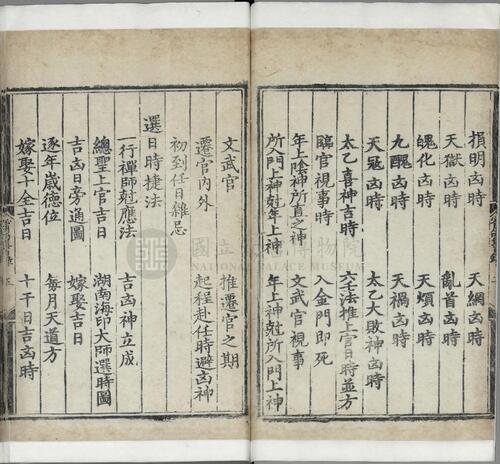 損明凶時　天網凶時
天獄凶時　亂首凶時
魄化凶時　天煩凶時
九醜凶時　天禍凶時
天冦凶時　太乙大敗神凶時
太乙喜神吉時　六壬法推上官日時並方
臨官視事時　入金門即死
年上陰神所直之神　文武官視事
所入門上神尅年上神　年上神尅所入門上神
文武官　推遷官之期
遷官內外　起程赴任時避凶神
初到任日雜忌
選日時捷法
一行禪師尅應法　吉凶神立成
總聖上官吉日　湖南海印大師選時圖
吉凶日旁通圖　嫁娶吉日
逐年歲德位　每月天道方
嫁娶十全吉日　十干日吉凶時
國立故宮博物院
NATIONAL PALACE MUSEUM